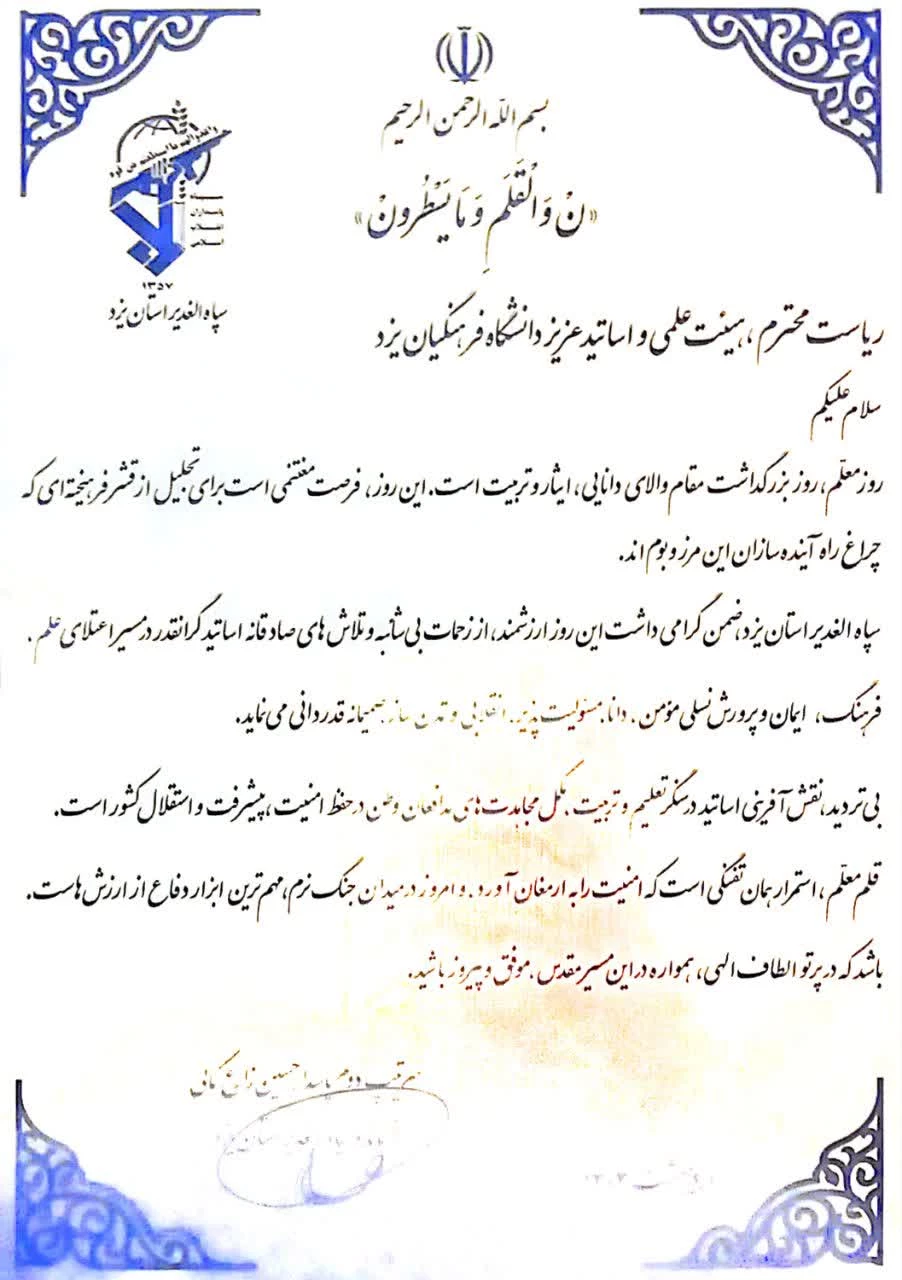 بسم الله الرحمن الرحیم
«نْ وَالْقَلَمِ وَ مَا یَسْطُرُونْ»
وَاَعِدّوا لَهُم مَا اسْتَطَعْتُم مِن قُوة
سپاه
پاسداران
انقلاب
اسلامی
۱۳۵۷
سپاه الغدیر استان یزد
ریاست محترم، هیئت علمی و اساتید عزیز دانشگاه فرهنگیان یزد
سلام علیکم
روز معلّم، روز بزرگداشت مقام والای دانایی، ایثار و تربیت است. این روز، فرصت مغتنمی است برای تجلیل از قشر فرهیخته ای که
چراغ راه آینده سازان این مرز و بوم اند.
سپاه الغدیر استان یزد، ضمن گرامی داشت این روز ارزشمند، از زحمات بی شائبه و تلاش های صادقانه اساتید گرانقدر در مسیر اعتلای علم،
فرهنگ، ایمان و پرورش نسلی مؤمن، دانا، مسئولیت پذیر، انقلابی و تمدن ساز صمیمانه قدردانی می نماید.
بی تردید، نقش آفرینی اساتید در سنگر تعلیم و تربیت، مکمل مجاهدت های مدافعان وطن در حفظ امنیت، پیشرفت و استقلال کشور است.
قلم معلّم، استمرار همان تفنگی است که امنیت را به ارمغان آورد، و امروز در میدان جنگ نرم، مهم ترین ابزار دفاع از ارزش هاست.
باشد که در پرتو الطاف الهی، همواره در این مسیر مقدس، موفق و پیروز باشید.
سرتیپ دوم پاسدار حسین زارع کمالی